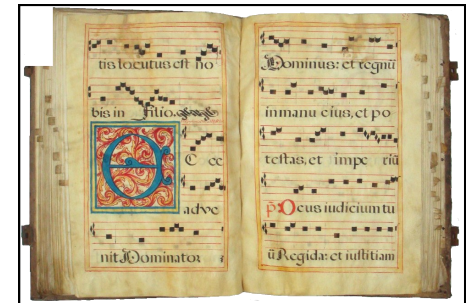 tis locutus est no
bis in Filio.
E C ce
adve
nit Dominator
Dominus: et regnū
in manu eius, et po
testas, et impe riū
p̄. Deus iudicium tu
ū Regi da: et iustitiam